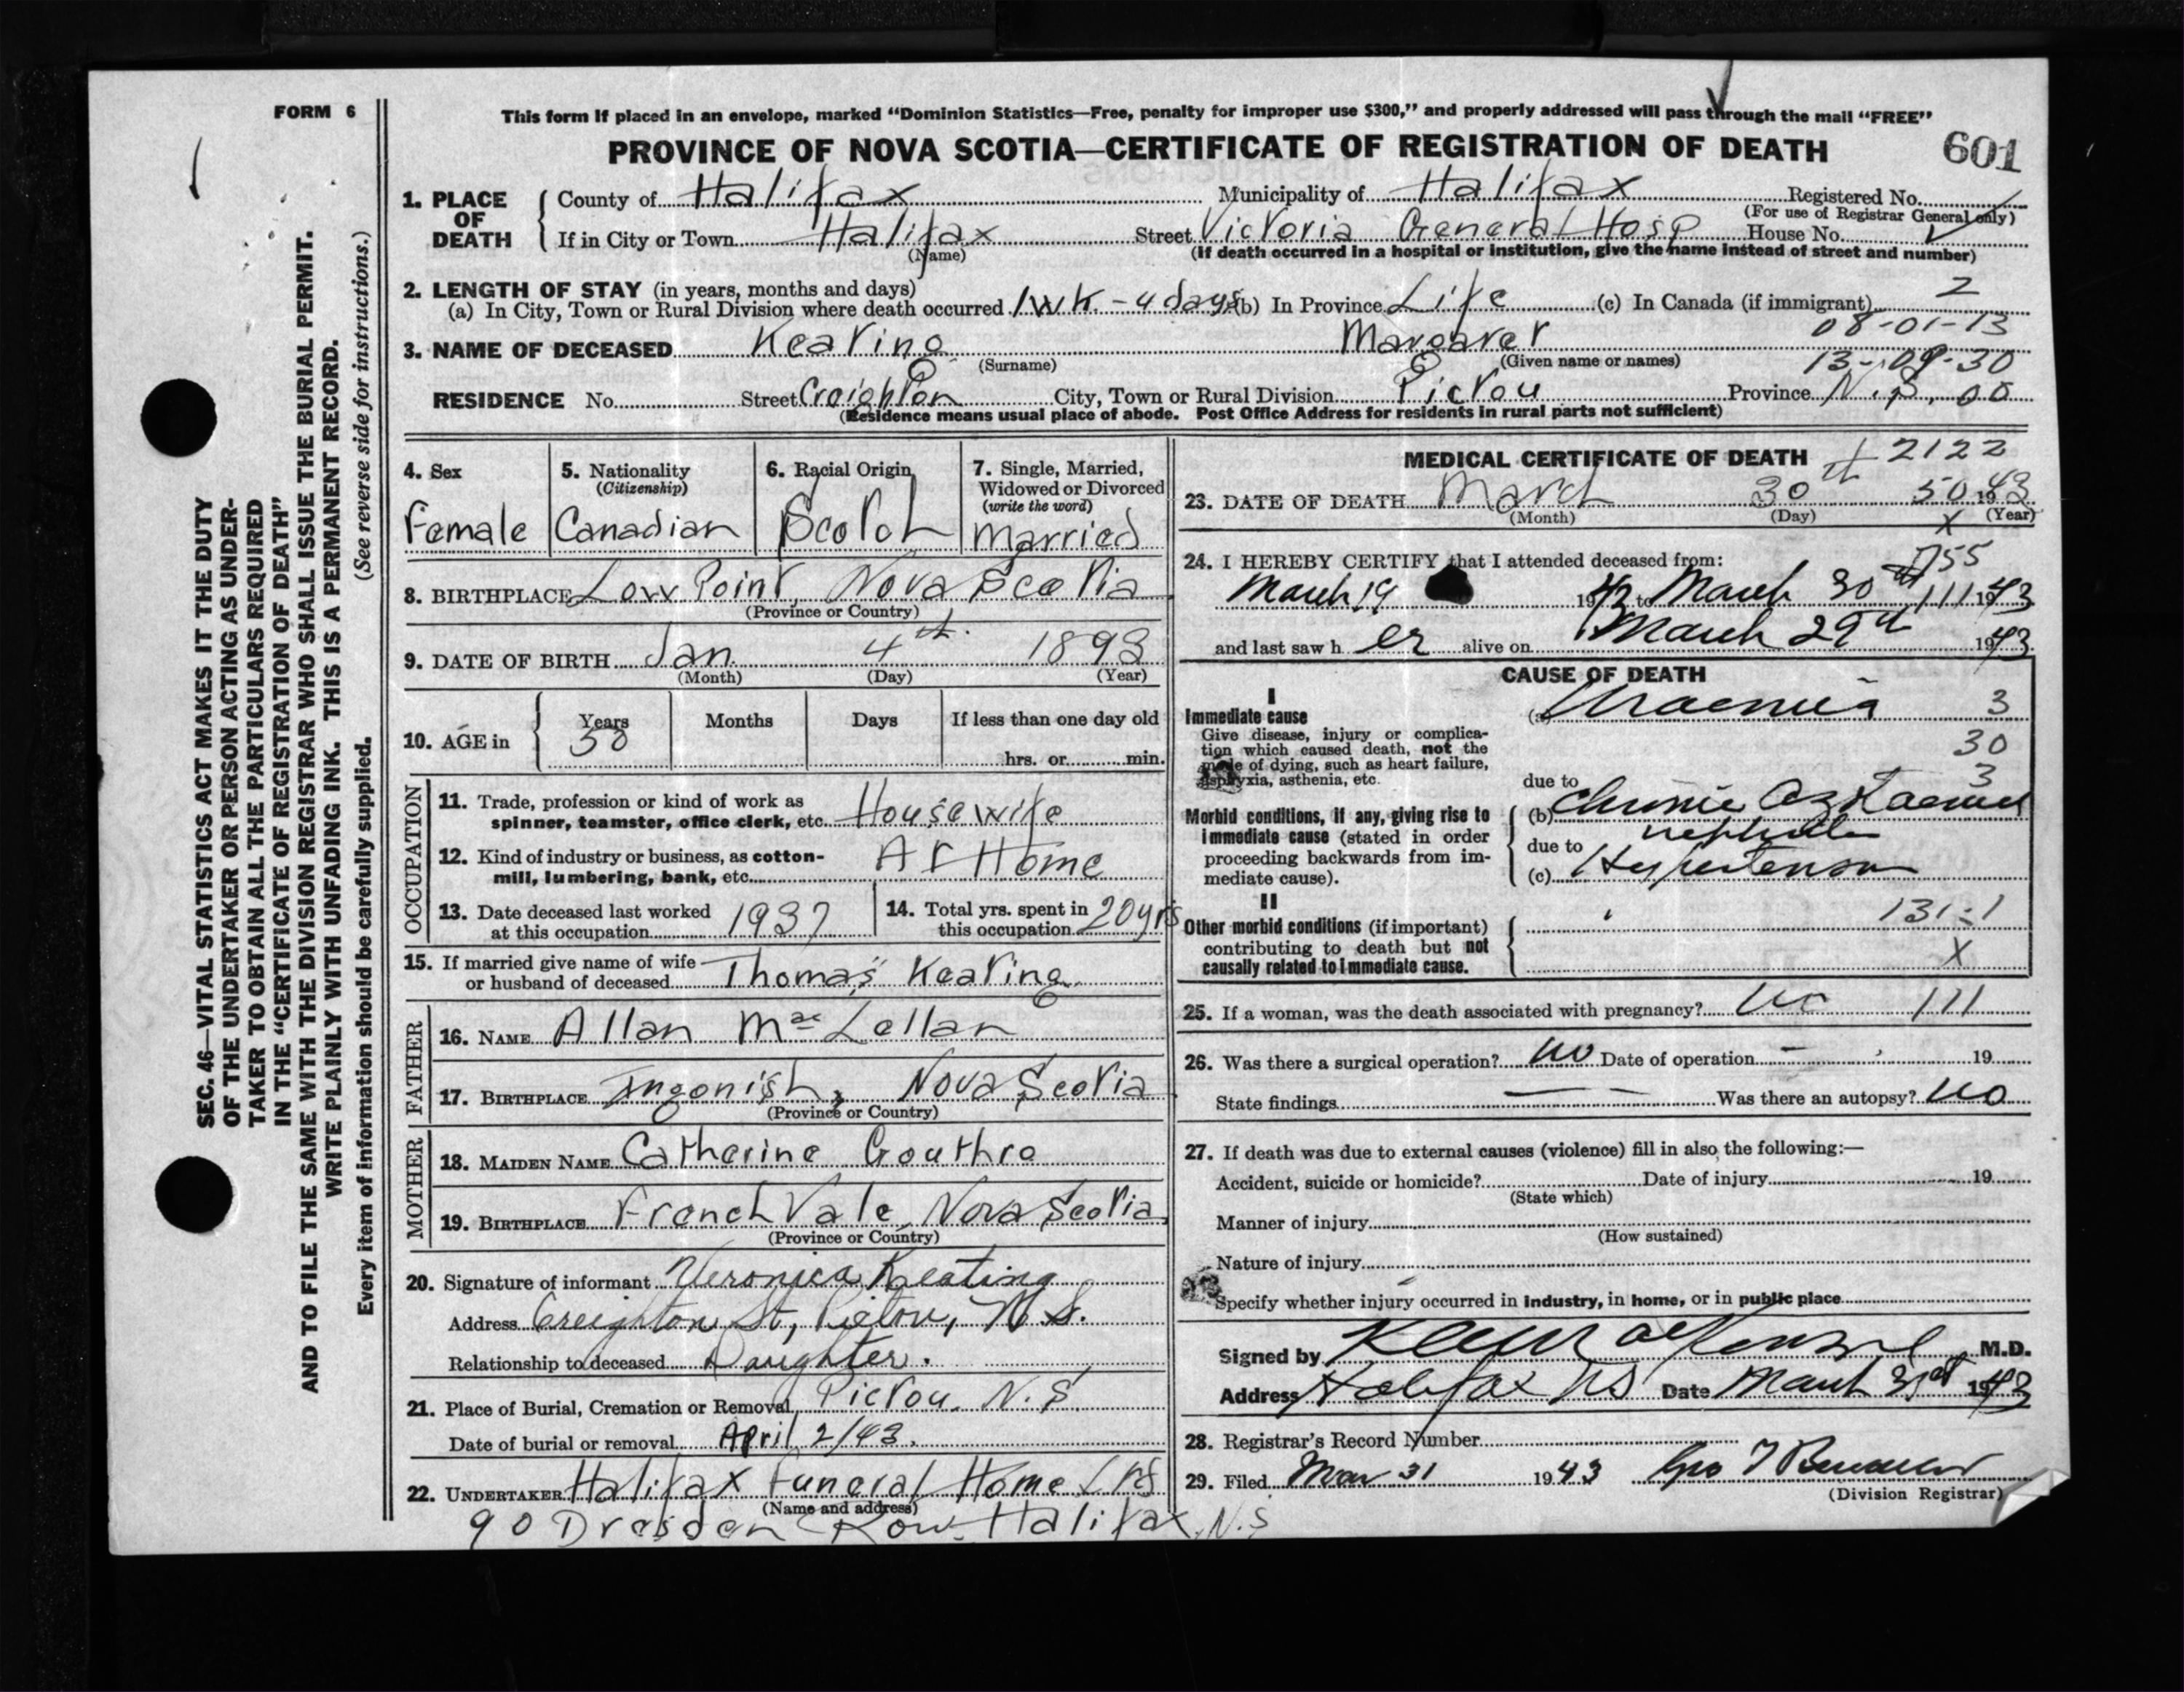 FORM 6
This form if placed in an envelope, marked "Dominion Statistics—Free, penalty for improper use $300," and properly addressed will pass through the mail "FREE"
PROVINCE OF NOVA SCOTIA—CERTIFICATE OF REGISTRATION OF DEATH 601
SEC. 46—VITAL STATISTICS ACT MAKES IT THE DUTY
OF THE UNDERTAKER OR PERSON ACTING AS UNDER-
TAKER TO OBTAIN ALL THE PARTICULARS REQUIRED
IN THE "CERTIFICATE OF REGISTRATION OF DEATH"
AND TO FILE THE SAME WITH THE DIVISION REGISTRAR WHO SHALL ISSUE THE BURIAL PERMIT.
WRITE PLAINLY WITH UNFADING INK. THIS IS A PERMANENT RECORD.
Every item of information should be carefully supplied. (See reverse side for instructions.)
1. PLACE OF DEATH
County of Halifax Municipality of Halifax Registered No.
(For use of Registrar General only)
If in City or Town Halifax Street Victoria General Hosp House No.
(Name) (If death occurred in a hospital or institution, give the name instead of street and number)
2. LENGTH OF STAY (in years, months and days)
(a) In City, Town or Rural Division where death occurred 1 wk - 4 days (b) In Province Life (c) In Canada (if immigrant) 2
08-01-13
3. NAME OF DECEASED Keating Margaret
(Surname) (Given name or names) 13-09-30
RESIDENCE No. Street Creighton City, Town or Rural Division Pictou Province N.S. 00
(Residence means usual place of abode. Post Office Address for residents in rural parts not sufficient)
4. Sex
Female
5. Nationality
(Citizenship)
Canadian
6. Racial Origin
Scotch
7. Single, Married,
Widowed or Divorced
(write the word)
Married
8. BIRTHPLACE Low Point, Nova Scotia
(Province or Country)
9. DATE OF BIRTH Jan. 4th. 1893
(Month) (Day) (Year)
10. AGE in Years Months Days If less than one day old
50
hrs. or min.
OCCUPATION
11. Trade, profession or kind of work as
spinner, teamster, office clerk, etc. Housewife
12. Kind of industry or business, as cotton-
mill, lumbering, bank, etc. At Home
13. Date deceased last worked
at this occupation 1937
14. Total yrs. spent in
this occupation 20 yrs
15. If married give name of wife
or husband of deceased Thomas Keating
FATHER
16. NAME Allan Mac Lellan
17. BIRTHPLACE Ingonish, Nova Scotia
(Province or Country)
MOTHER
18. MAIDEN NAME Catherine Gouthro
19. BIRTHPLACE French Vale, Nova Scotia
(Province or Country)
20. Signature of informant Veronica Keating
Address Creighton St, Pictou, N.S.
Relationship to deceased Daughter.
21. Place of Burial, Cremation or Removal Pictou. N.S
Date of burial or removal April 2/43.
22. UNDERTAKER Halifax Funeral Home Ltd
(Name and address)
90 Dresden Row Halifax, N.S
MEDICAL CERTIFICATE OF DEATH 2122
23. DATE OF DEATH March 30th 50 1943
(Month) (Day) (Year)
X
24. I HEREBY CERTIFY that I attended deceased from:
755
March 19 1943 to March 30th 111 1943
and last saw h er alive on March 29th 1943
CAUSE OF DEATH
I
Immediate cause
Give disease, injury or complica-
tion which caused death, not the
mode of dying, such as heart failure,
asphyxia, asthenia, etc.
(a) Uraemia 3
30
3
due to
Morbid conditions, if any, giving rise to
immediate cause (stated in order
proceeding backwards from im-
mediate cause).
(b) Chronic Azotaemic
nephritis
due to
(c) Hypertension
II
Other morbid conditions (if important)
contributing to death but not
causally related to immediate cause.
131-1
X
25. If a woman, was the death associated with pregnancy? no 111
26. Was there a surgical operation? no Date of operation - 19
State findings — Was there an autopsy? no
27. If death was due to external causes (violence) fill in also the following:—
Accident, suicide or homicide? Date of injury 19
(State which)
Manner of injury
(How sustained)
Nature of injury
Specify whether injury occurred in industry, in home, or in public place
Signed by M.D.
Address Halifax NS Date March 31st 1943
28. Registrar's Record Number
29. Filed Mar 31 1943 Geo
(Division Registrar)